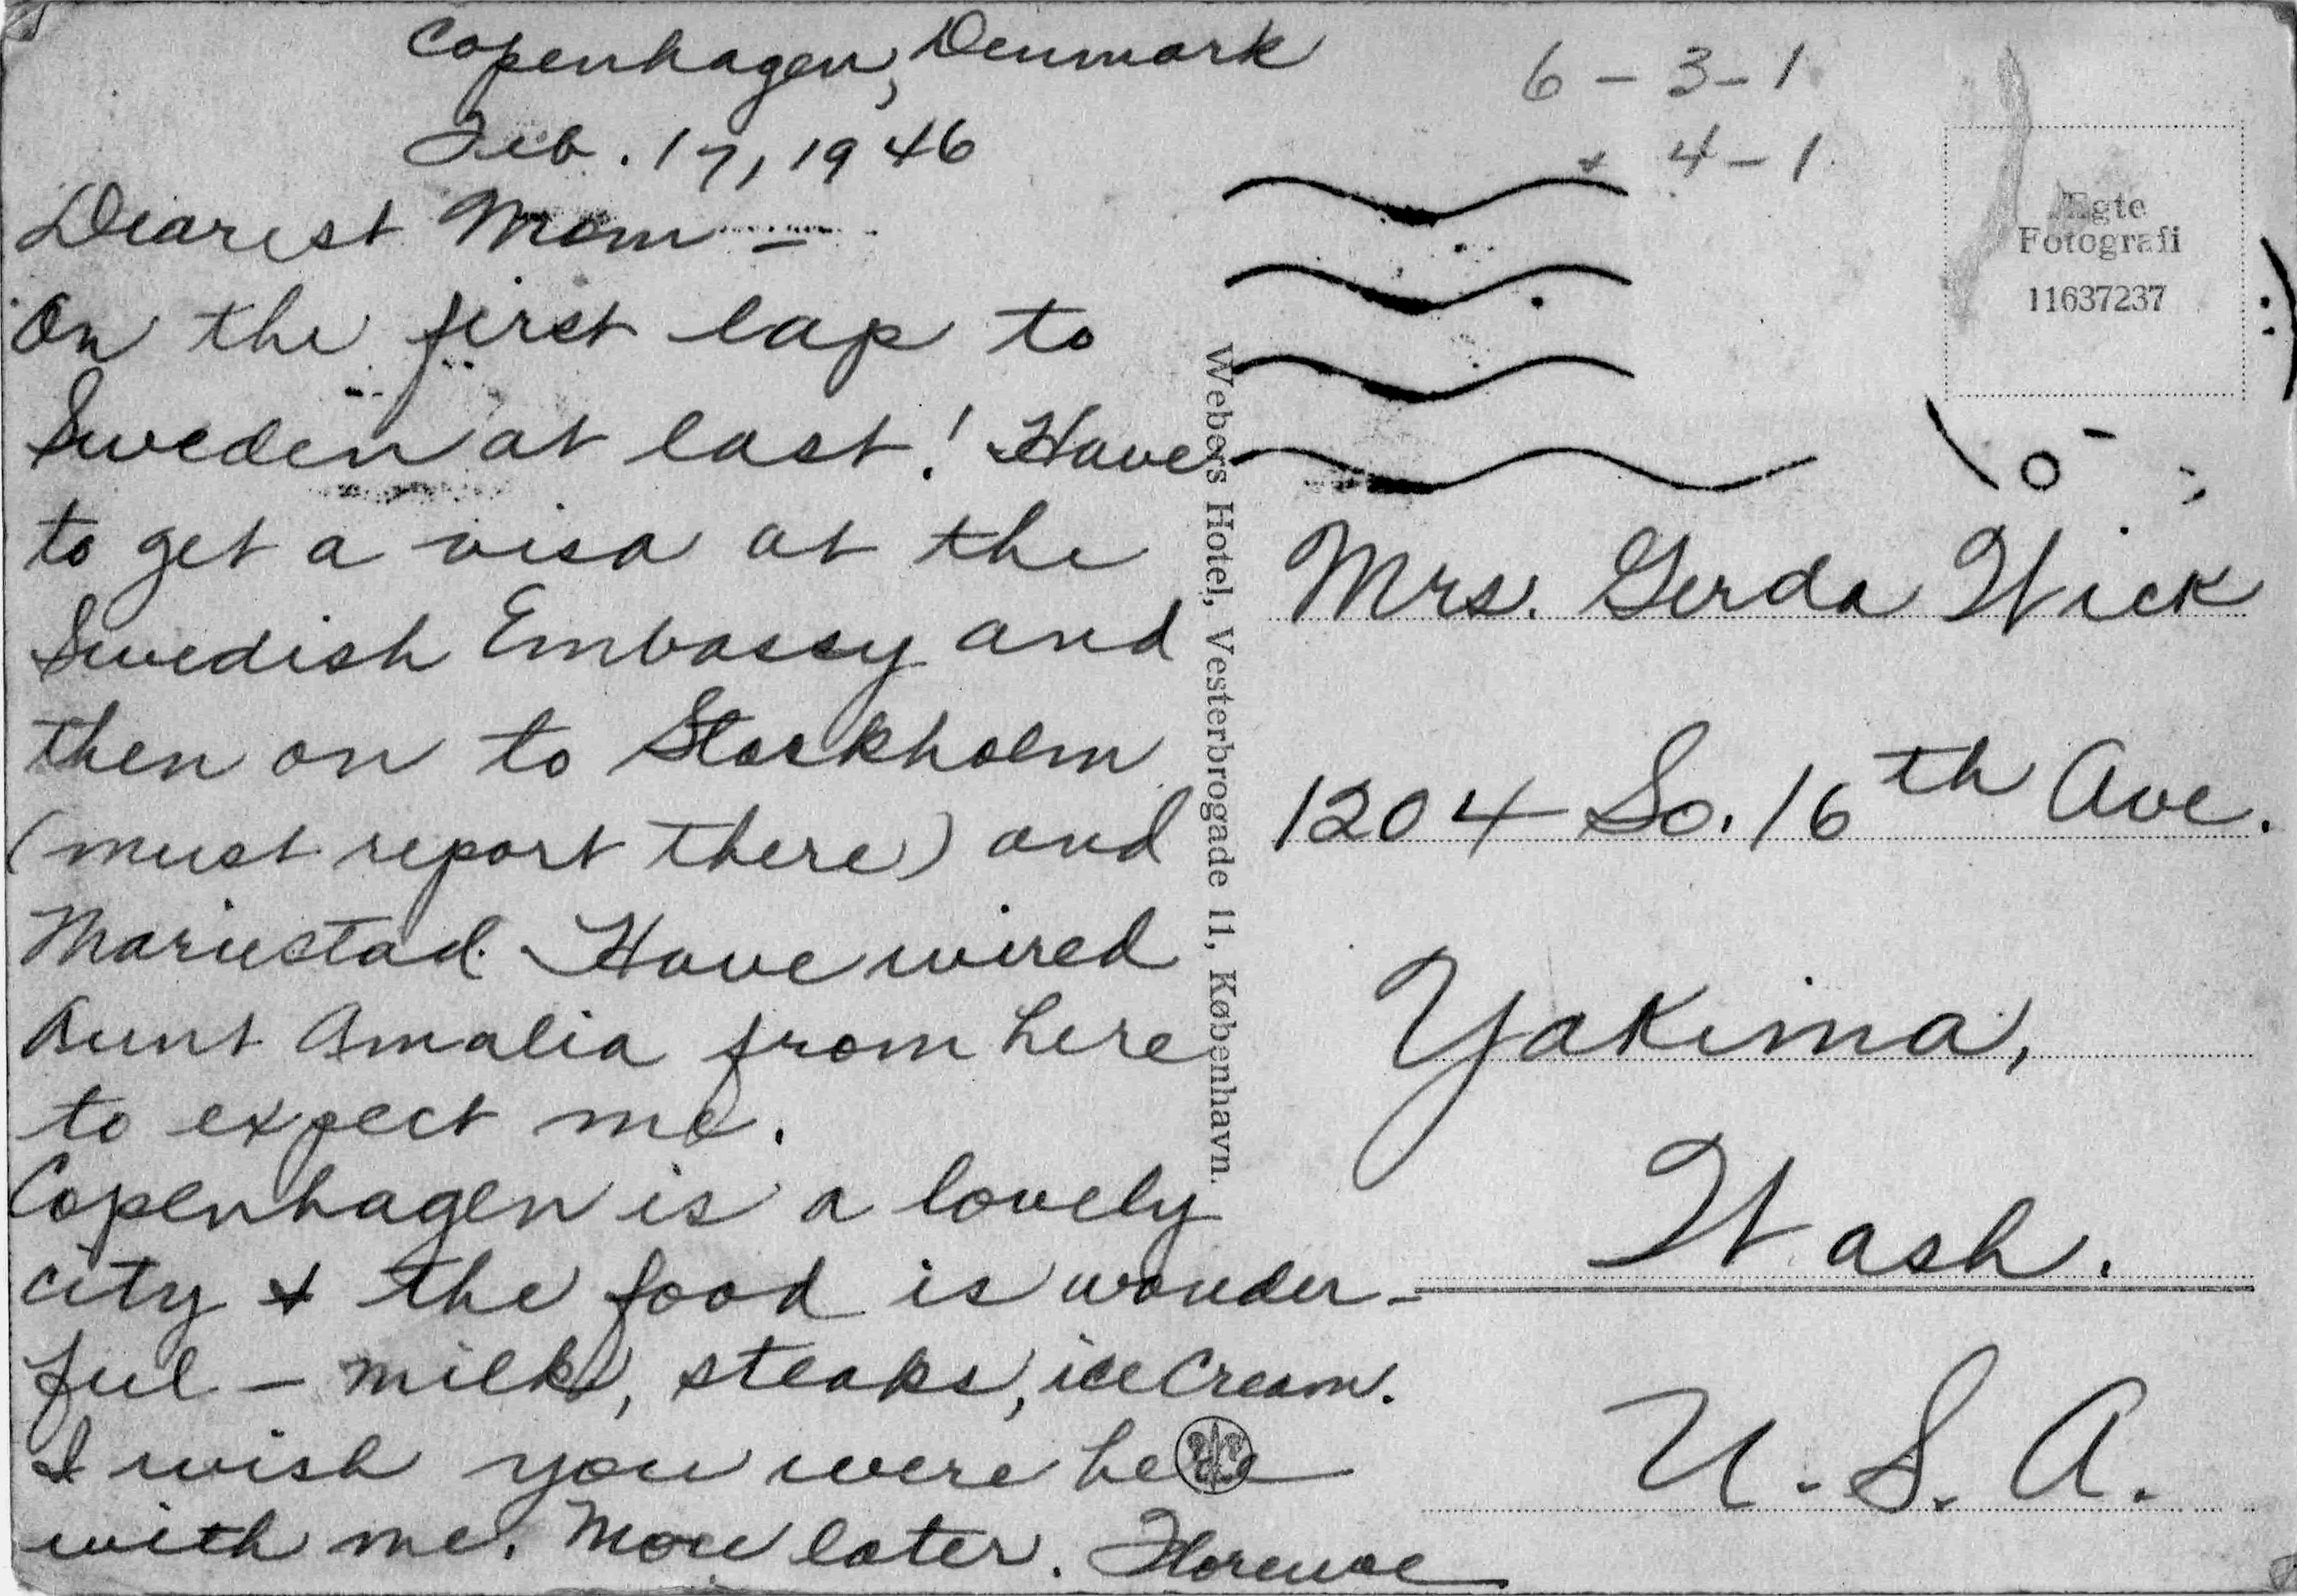 Copenhagen, Denmark
Feb. 17, 1946
Dearest Mom -
On the first lap to
Sweden at last! Have
to get a visa at the
Swedish Embassy and
then on to Stockholm
(must report there) and
Mariestad. Have wired
Aunt Amalia from here
to expect me.
Copenhagen is a lovely
city + the food is wonder-
ful - milk, steaks, ice cream.
I wish you were here
with me. More later. Florence
Webers Hotel, Vesterbrogade 11, København.
6-3-1
+ 4-1
Ægte
Fotografi
11637237
Mrs. Gerda Wick
1204 So. 16th Ave.
Yakima,
Wash.
U.S.A.